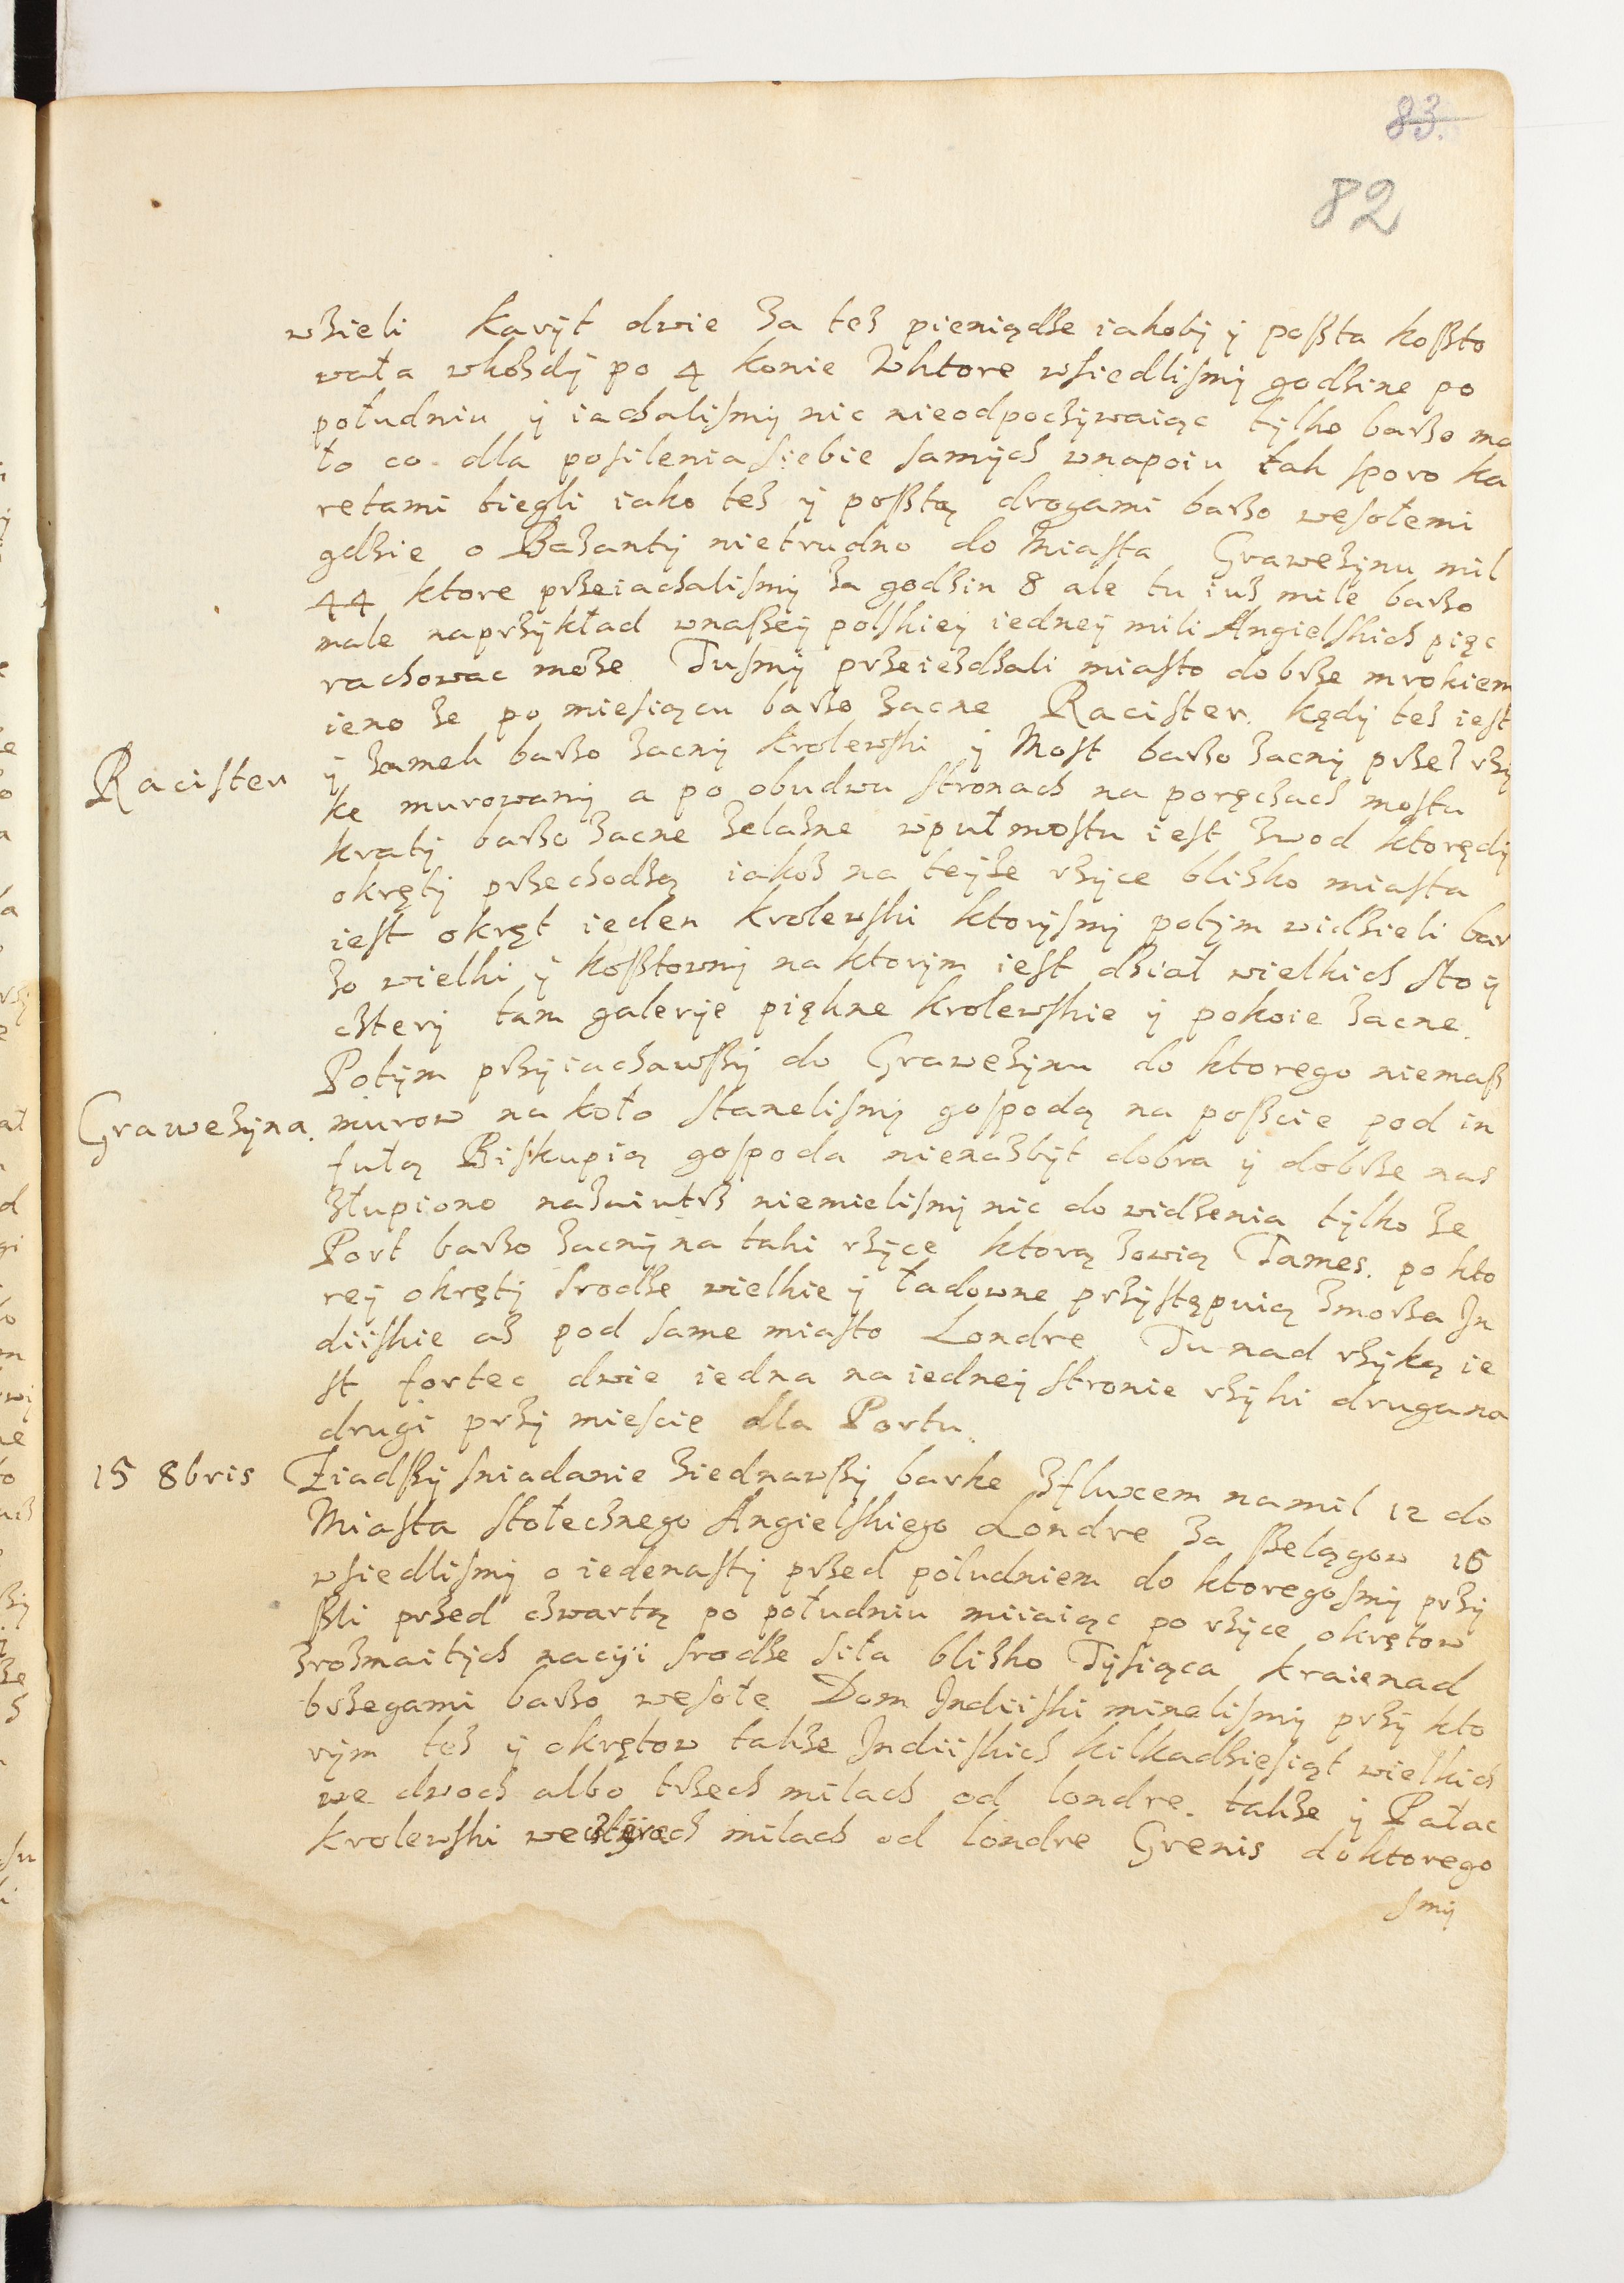 83.
82
wzieli karyt dwie za tez pieniądze iakoby y poszta koszto
wała wkozdy po 4 konie Wktore wsiedlismy godzine po
południu y iachalismy nic nieodpoczywaiąc tylko barzo ma
ło co dla posilenia siebie samych wnapoiu tak sporo ka
retami biegli iako tez y posztą drogami barzo wesołemi
gdzie o Bazanty nietrudno do Miasta Grawezynu mil
44 ktore przeiachalismy za godzin 8 ale tu iuz mile barzo
male naprzykład wnaszey polskiey iedney mili Angielskich pięc
rachowac moze Tusmy przeiezdzali miasto dobrze mrokiem
ieno ze po miesiącu barzo zacne Racister. kędy tez iest
Racister
y zamek barzo zacny krolewski y Most barzo zacny przez rzy
ke murowany a po obudwu stronach na poręczach mostu
kraty barzo zacne zelazne wpuł mostu iest zwod ktorędy
okręty przechodzą iakoz na teyze rzyce blisko miasta
iest okręt ieden krolewski ktorysmy potym widzieli bar
zo wielki y kosztowny na ktorym iest dział wielkich sto y
cztery tam galerye piękne krolewskie y pokoie zacne.
Potym przyiachawszy do Grawezynu do ktorego niemasz
Grawezyna.
murow na koło stanelismy gospodą na poszcie pod in
fułą Biskupią gospoda nienazbyt dobra y dobrze nas
złupiono nazaiutrz niemielismy nic do widzenia tylko ze
Port barzo zacny na taki rzyce ktorą zowią Tames. po kto
rey okręty srodze wielkie y ładowne przystępuią zmorza In
diiskie az pod same miasto Londre Tu nad rzyką ie
st fortec dwie iedna na iedney stronie rzyki druga na
drugi przy miescie dla Portu.
15 8bris
Ziadszy sniadanie ziednawszy barke zfluxem na mil 12 do
Miasta stołecznego Angielskiego Londre za szelągow 16
wsiedlismy o iedenasty przed południem do ktoregosmy przy
szli przed czwartą po południu miiaiąc po rzyce okrętow
zrozmaitych nacyi srodze siła blisko Tysiąca kraie nad
brzegami barzo wesołe Dom Indiiski minelismy przy kto
rym tez y okrętow takze Indiiskich kilkadziesiąt wielkich
we dwoch albo trzech milach od londre. takze y Pałac
krolewski we cztyrech milach od londre Grenis do ktorego
smy